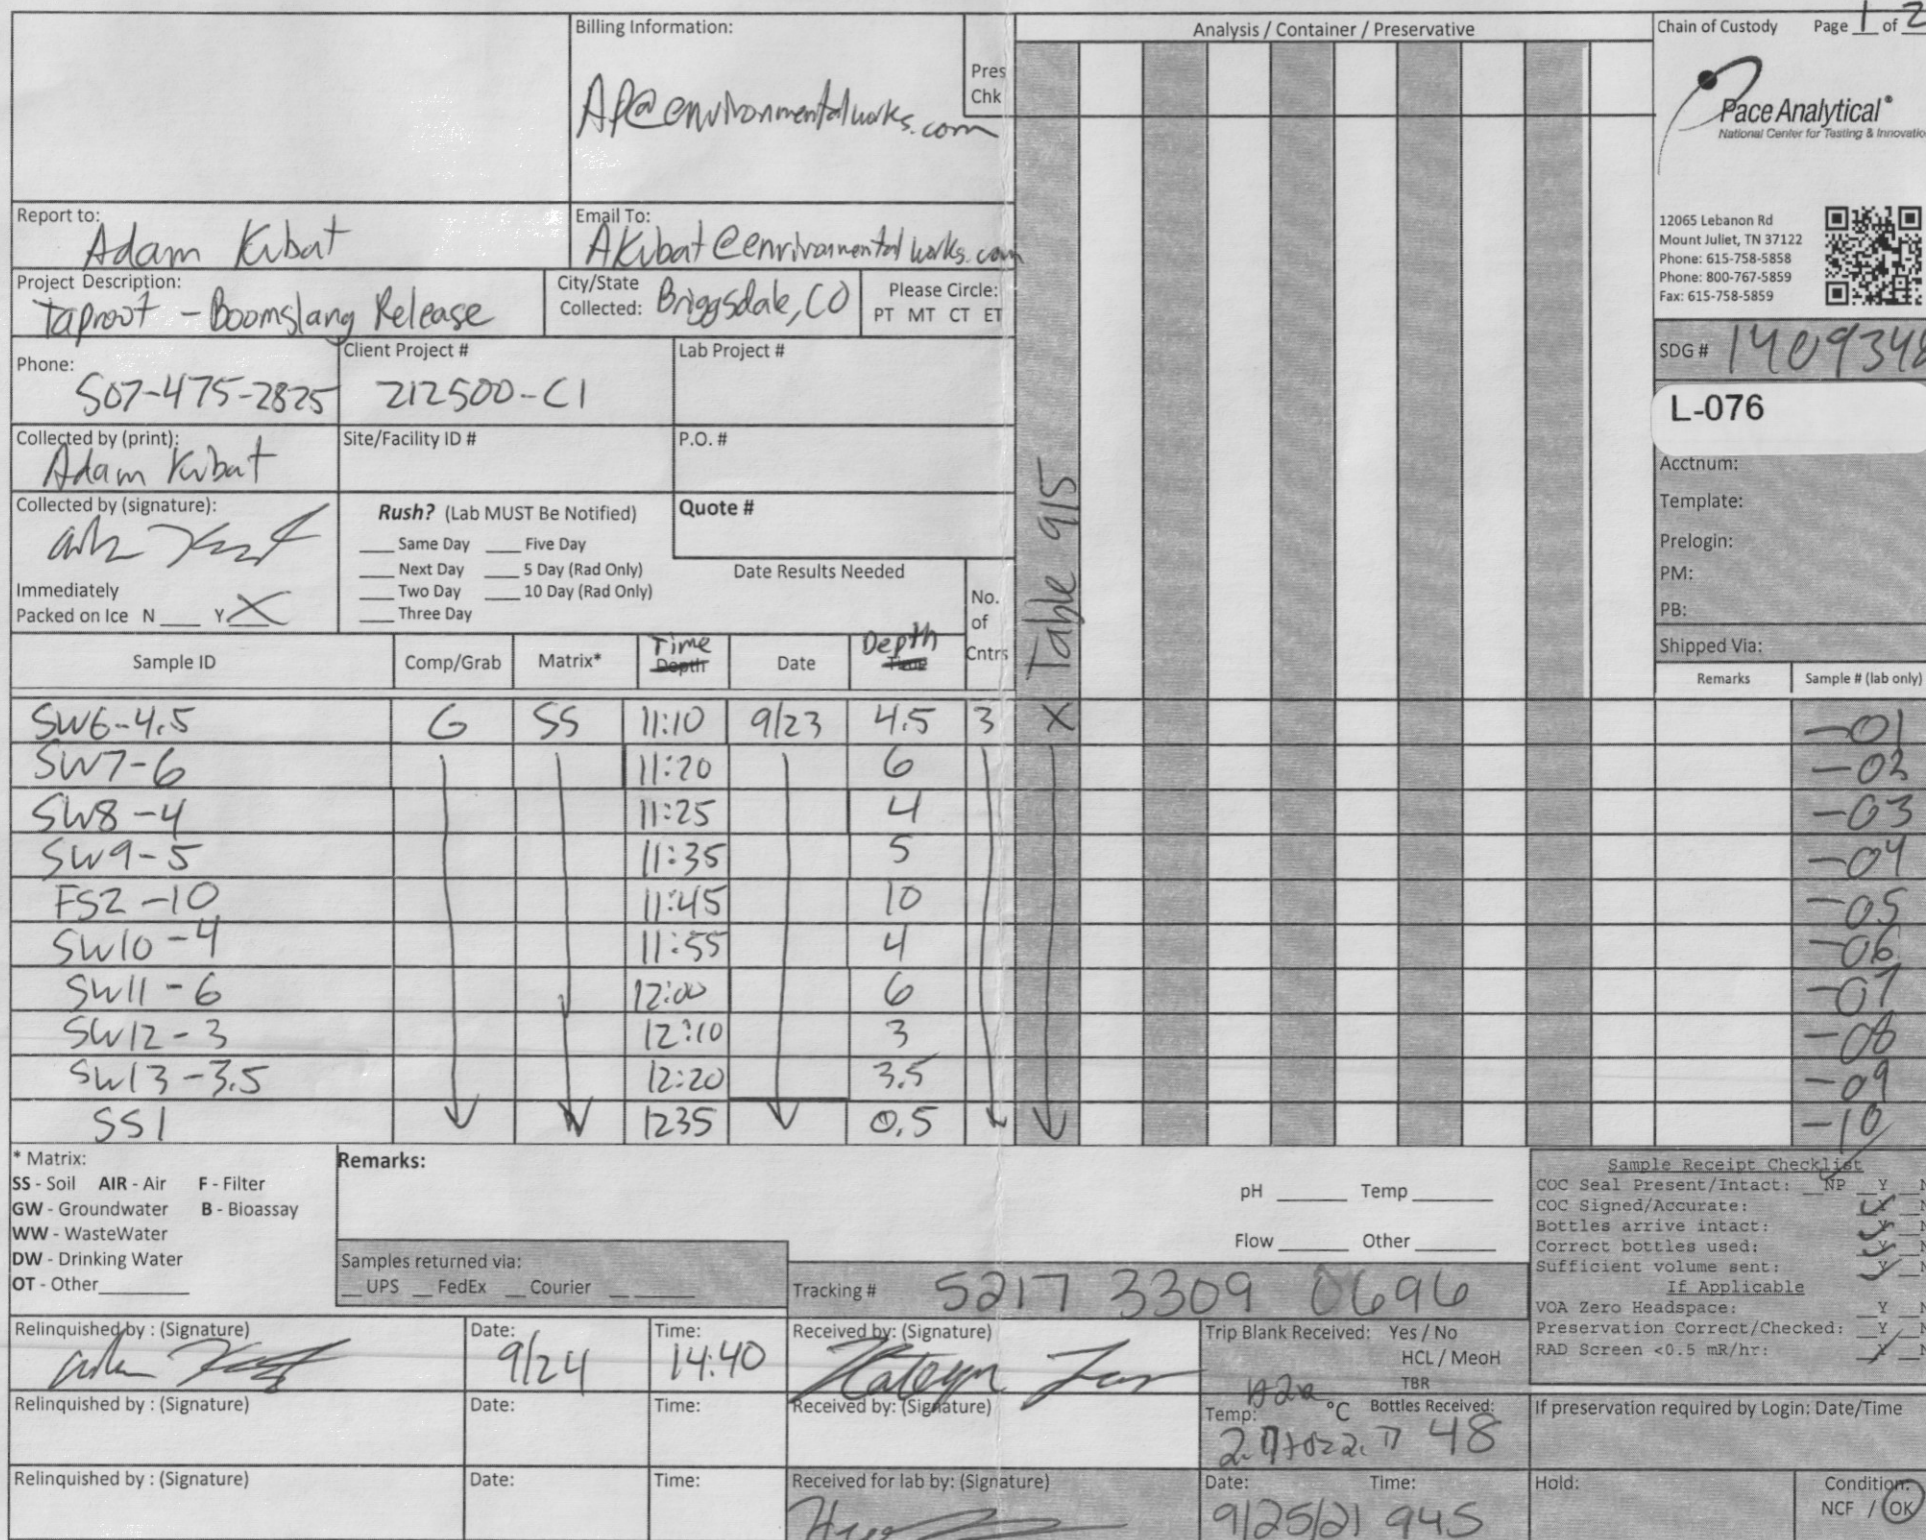 Billing Information:
AP@environmentalworks.com
Pres
Chk
Analysis / Container / Preservative
Chain of Custody Page 1 of 2
Pace Analytical®
National Center for Testing & Innovation
12065 Lebanon Rd
Mount Juliet, TN 37122
Phone: 615-758-5858
Phone: 800-767-5859
Fax: 615-758-5859
Report to:
Adam Kubat
Email To:
AKubat@environmentalworks.com
Project Description:
Taproot - Boomslang Release
City/State
Collected: Briggsdale, CO
Please Circle:
PT MT CT ET
SDG # 1409348
L-076
Phone:
507-475-2825
Client Project #
212500-C1
Lab Project #
Collected by (print):
Adam Kubat
Site/Facility ID #
P.O. #
Acctnum:
Template:
Prelogin:
PM:
PB:
Shipped Via:
Collected by (signature):
Immediately
Packed on Ice N ___ Y X
Rush? (Lab MUST Be Notified)
___ Same Day ___ Five Day
___ Next Day ___ 5 Day (Rad Only)
___ Two Day ___ 10 Day (Rad Only)
___ Three Day
Quote #
Date Results Needed
No.
of
Cntrs
Table 915
Time Depth
Sample ID Comp/Grab Matrix* Depth Date Time Remarks Sample # (lab only)
SW6-4.5 G SS 11:10 9/23 4.5 3 X -01
SW7-6 11:20 6 -02
SW8-4 11:25 4 -03
SW9-5 11:35 5 -04
FS2-10 11:45 10 -05
SW10-4 11:55 4 -06
SW11-6 12:00 6 -07
SW12-3 12:10 3 -08
SW13-3.5 12:20 3.5 -09
SS1 1235 0.5 -10
* Matrix:
SS - Soil AIR - Air F - Filter
GW - Groundwater B - Bioassay
WW - WasteWater
DW - Drinking Water
OT - Other
Remarks:
pH ___ Temp ___
Flow ___ Other ___
Samples returned via:
__ UPS __ FedEx __ Courier
Tracking # 5217 3309 0696
Sample Receipt Checklist
COC Seal Present/Intact: __NP __Y __N
COC Signed/Accurate: Y __N
Bottles arrive intact: Y __N
Correct bottles used: Y __N
Sufficient volume sent: Y __N
If Applicable
VOA Zero Headspace: __Y __N
Preservation Correct/Checked: __Y __N
RAD Screen <0.5 mR/hr: Y __N
Relinquished by : (Signature)
Date:
9/24
Time:
14:40
Received by: (Signature)
Trip Blank Received: Yes / No
HCL / MeoH
TBR
Relinquished by : (Signature)
Date:
Time:
Received by: (Signature)
Temp: °C
Bottles Received:
48
If preservation required by Login: Date/Time
Relinquished by : (Signature)
Date:
Time:
Received for lab by: (Signature)
Date:
9/25/21
Time:
945
Hold:
Condition:
NCF / OK